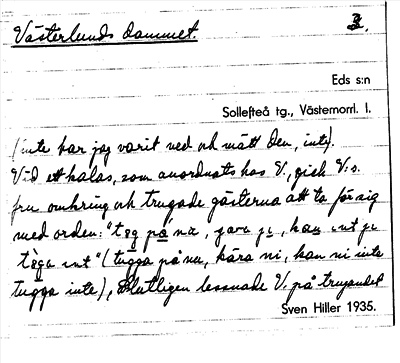 Västerlunds dammet.
3.
Eds s:n
Sollefteå tg., Västernorrl. l.
(inte har jag varit ved och mätt den, inte).
Vid ett kalas, som anordnats hos V., gick V:s.
fru omkring och trugade gästerna att ta för sig
med orden: "tɛg på na, jara ji, kan int ji
tɛga int" (tugga på nu, kära ni, kan ni inte
tugga inte), Slutligen lessnade V. på trugandet
Sven Hiller 1935.